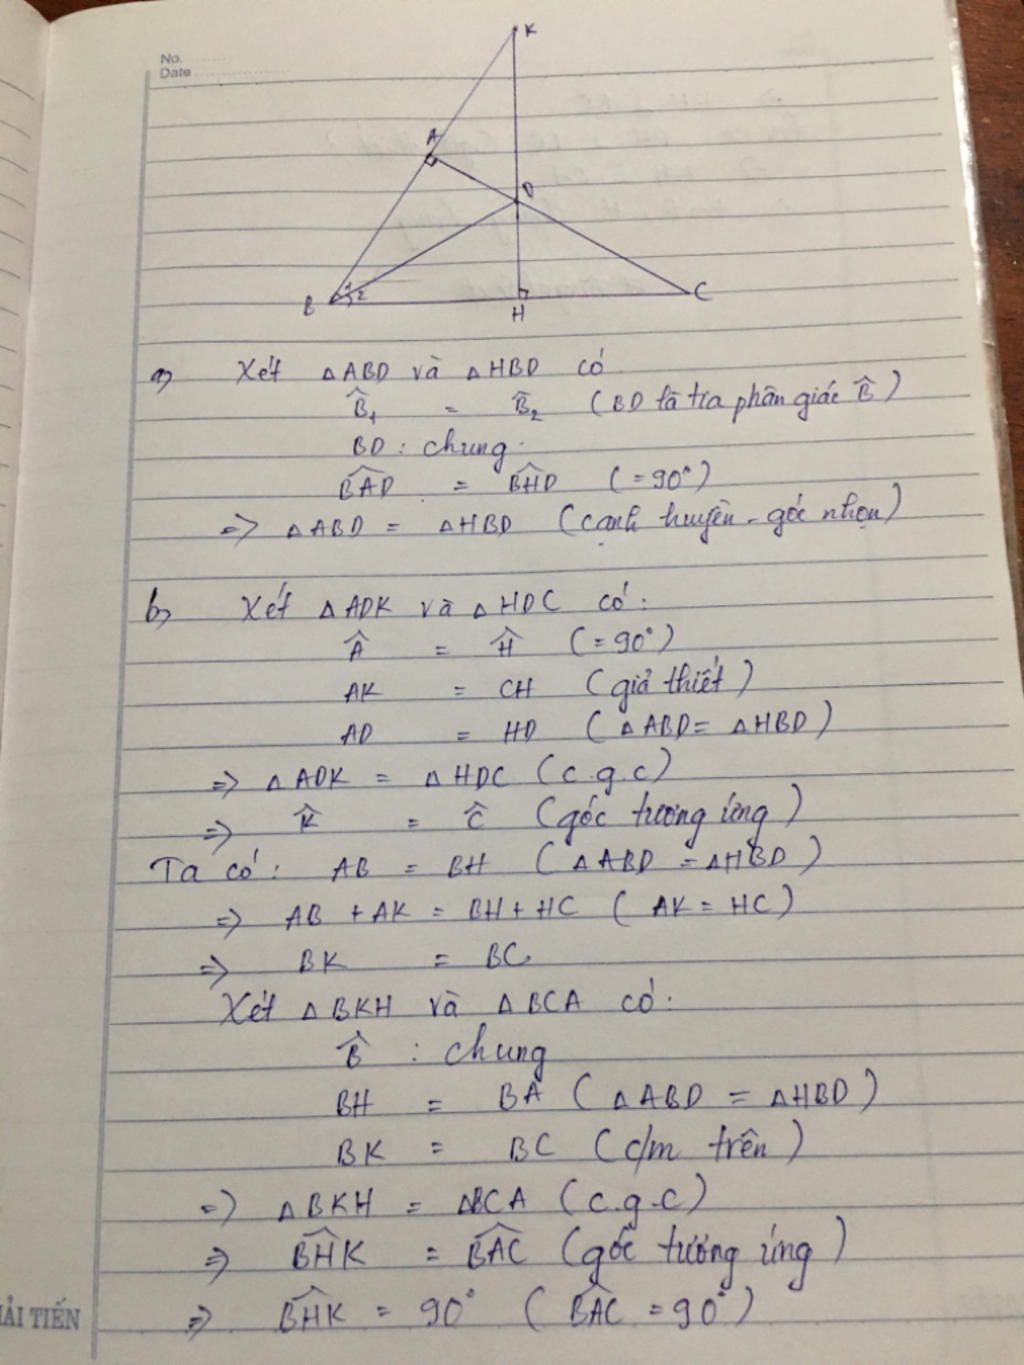 No.
Date
K
A
D
B 1 2
H
C
a) Xét △ABD và △HBD có
B̂₁ = B̂₂ (BD là tia phân giác B̂)
BD : chung.
B̂AD = B̂HD (=90°)
=> △ABD = △HBD (cạnh huyền - góc nhọn)
b) Xét △ADK và △HDC có:
Â = Ĥ (=90°)
AK = CH (giả thiết)
AD = HD (△ABD = △HBD)
=> △ADK = △HDC (c.g.c)
=> K̂ = Ĉ (góc tương ứng)
Ta có: AB = BH (△ABD = △HBD)
=> AB + AK = BH + HC (AK = HC)
=> BK = BC
Xét △BKH và △BCA có:
B̂ : chung
BH = BA (△ABD = △HBD)
BK = BC (c/m trên)
=> △BKH = △BCA (c.g.c)
=> B̂HK = B̂AC (góc tương ứng)
=> B̂HK = 90° (B̂AC = 90°)
ẢI TIẾN